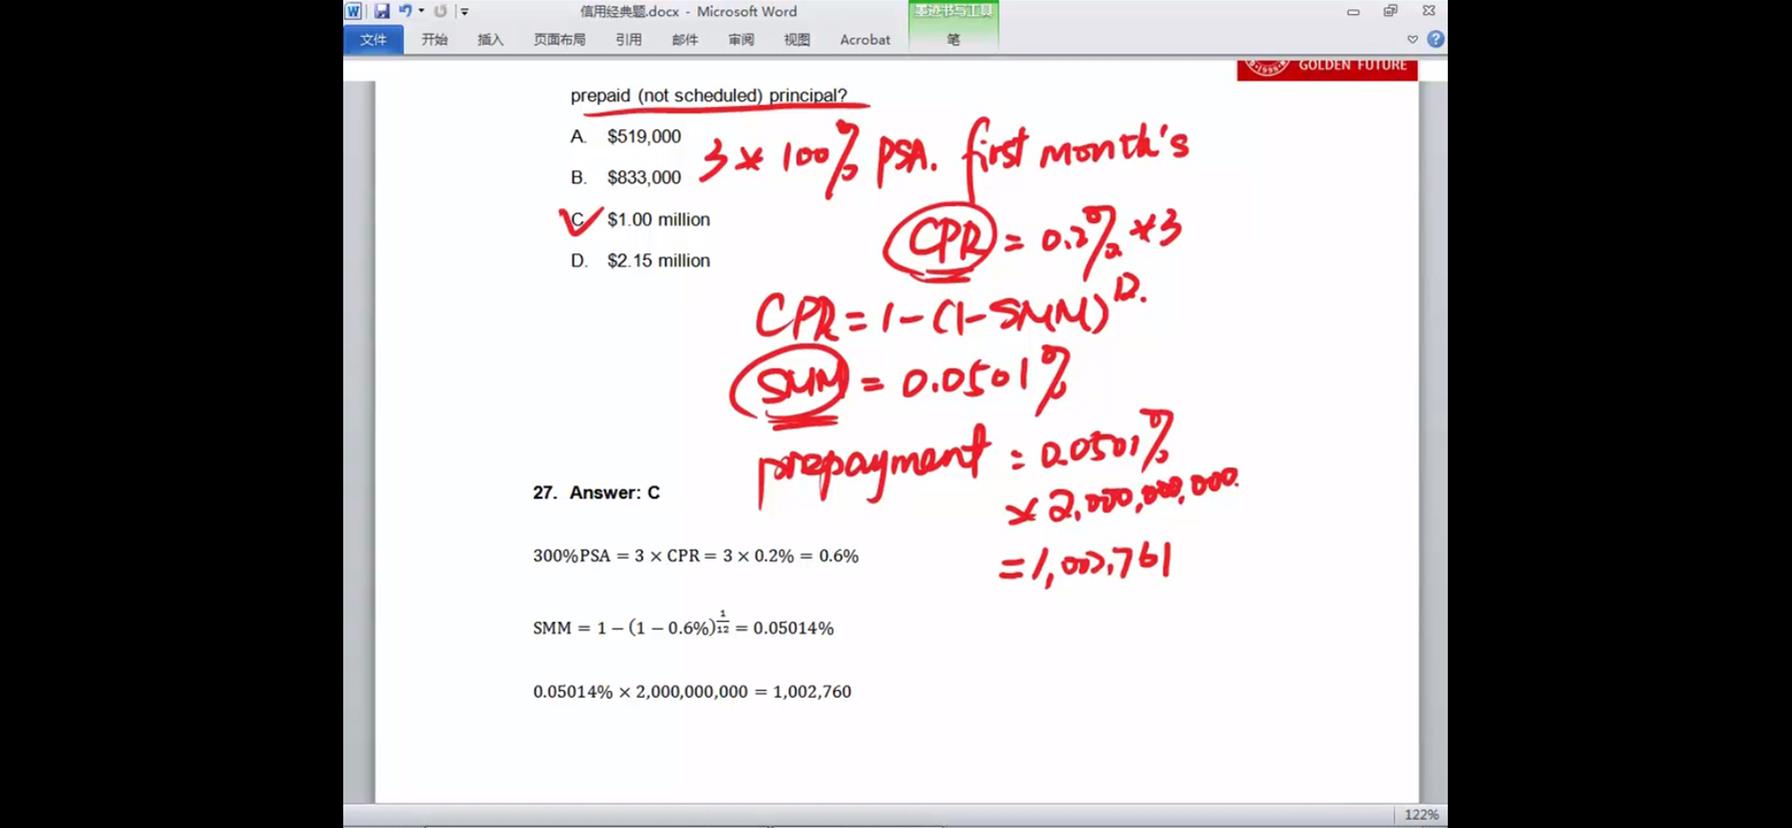 信用经典题.docx - Microsoft Word
墨迹书写工具
文件 开始 插入 页面布局 引用 邮件 审阅 视图 Acrobat 笔
GOLDEN FUTURE
prepaid (not scheduled) principal?
A. $519,000
3 * 100% PSA. first month's
B. $833,000
C $1.00 million
CPR = 0.2% * 3
D. $2.15 million
CPR = 1 - (1 - SMM)^12.
SMM = 0.0501%
prepayment = 0.0501%
* 2,000,000,000.
= 1,002,761
27. Answer: C
300%PSA = 3 × CPR = 3 × 0.2% = 0.6%
SMM = 1 − (1 − 0.6%)^(1/12) = 0.05014%
0.05014% × 2,000,000,000 = 1,002,760
122%